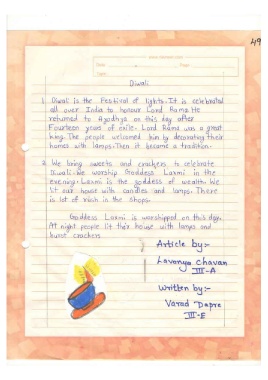 49
Date
Page
Diwali
1. Diwali is the Festival of lights. It is celebrated
all over India to honour Lord Rama. He
returned to Ayodhya on this day after
Fourteen years of exile. Lord Rama was a great
king. The people welcomed him by decorating their
homes with lamps. Then it became a tradition.
2. We bring sweets and crackers to celebrate
Diwali. We worship Goddess Laxmi in the
evening. Laxmi is the goddess of wealth. We
lit our house with candles and lamps. There
is lot of rush in the shops.
Goddess Laxmi is worshipped on this day.
At night people lit their house with lamps and
burst crackers
Article by:-
Lavanya Chavan
III-A
Written by:-
Varad Dapre
III-E